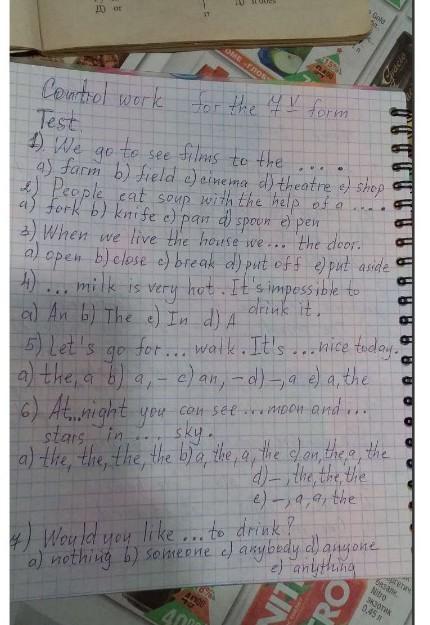 Control work for the 7 V form
Test.
1). We go to see films to the ....
a) farm b) field c) cinema d) theatre e) shop
2) People eat soup with the help of a ....
a) fork b) knife c) pan d) spoon e) pen
3) When we live the house we... the door.
a) open b) close c) break d) put off e) put aside
4) ... milk is very hot. It's impossible to
drink it.
a) An b) The c) In d) A
5) Let's go for... walk. It's ...nice today.
a) the, a b) a, – c) an, – d) –, a e) a, the
6) At...night you can see ...moon and ...
stars in ... sky.
a) the, the, the, the b) a, the, a, the c) an, the, a, the
d) –, the, the, the
e) –, a, a, the
7) Would you like ... to drink?
a) nothing b) someone c) anybody d) anyone
e) anything